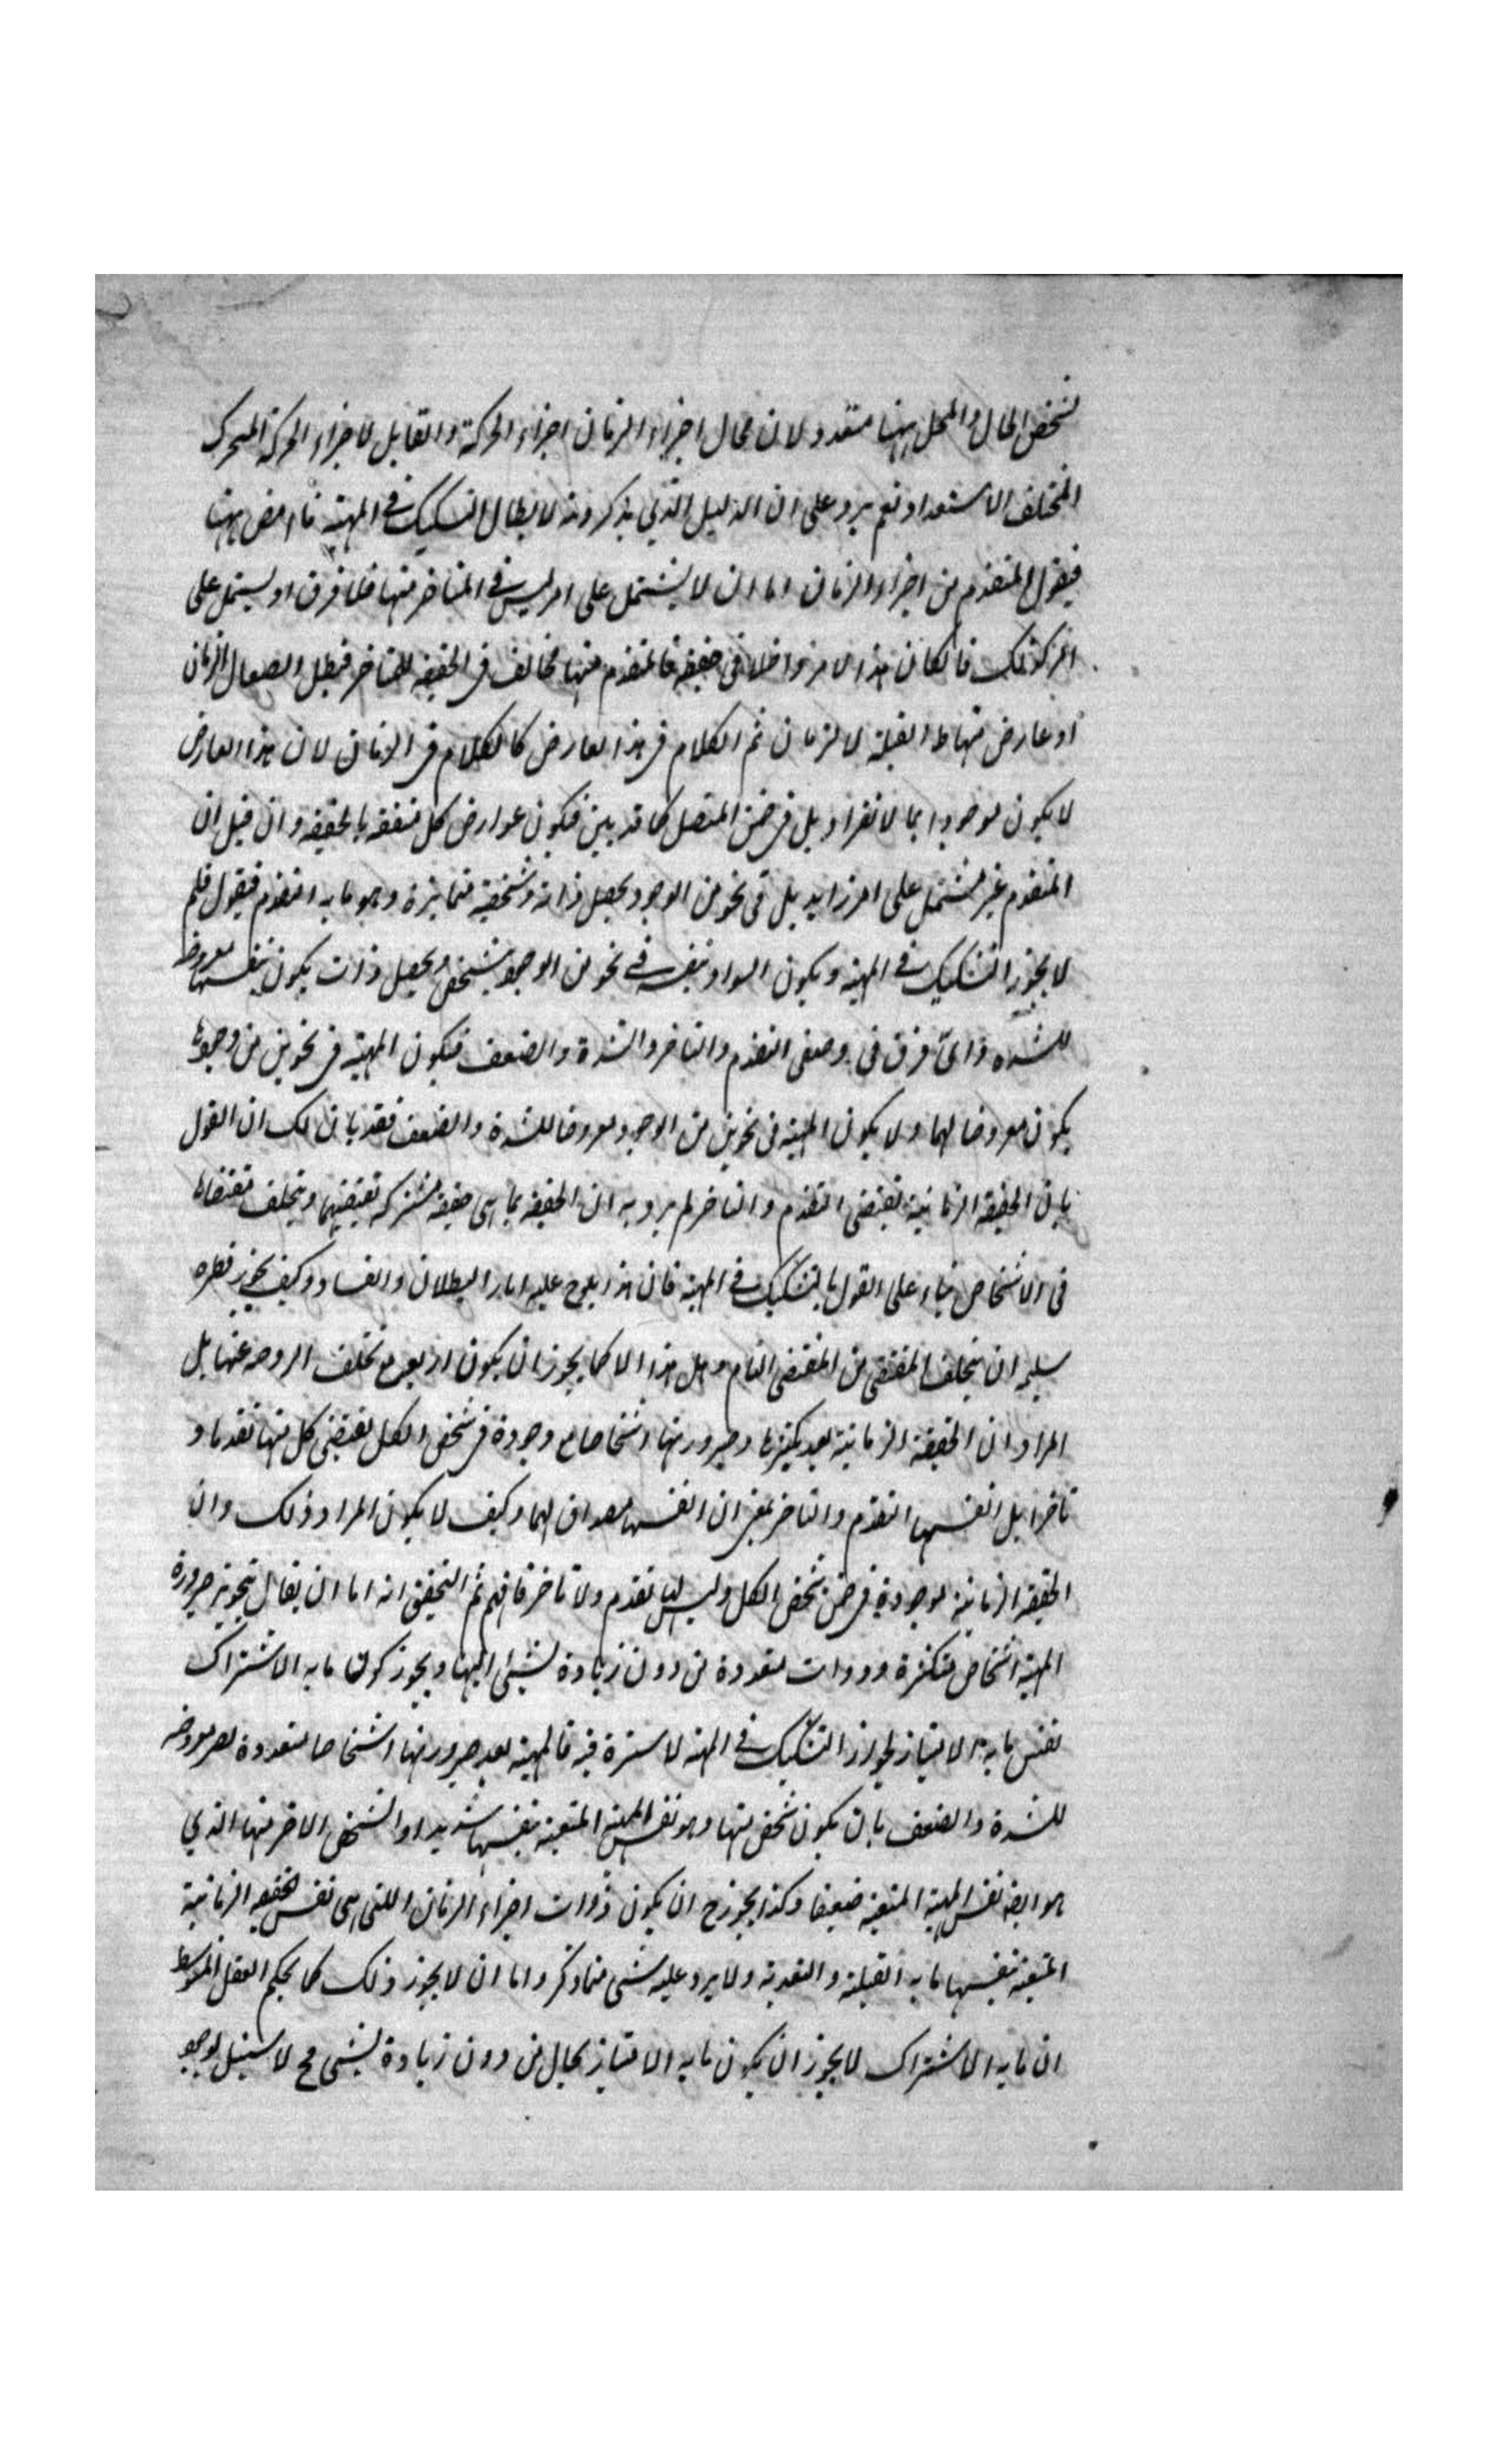 تشخص الحال والمحل ههنا متعدد لان محال اجزاء الزمان اجزاء الحركة والقابل لاجزاء الحركة المتحرك
المختلف الاستعداد نعم يرد على ان الدليل الذي يذكرونه لابطال التشكيك في المهية ناهض ههنا
فيقول المتقدم من اجزاء الزمان اما ان لا يشتمل على امر ليس في المتاخر منها فلا فرق او يشتمل على
امر كذلك فان كان هذا الامر داخلا في حقيقة فالمتقدم منها مخالف في الحقيقة للمتاخر فبطل اتصال الزمان
او عارض منها القبلية للزمان ثم الكلام في هذا العارض كالكلام في الزمان لان هذا العارض
لا يكون موجودا بما لانفراد بل في ضمن المتصل كما قد بين فيكون عوارض كل متفقة بالحقيقة وان قيل ان
المتقدم غير مشتمل على امر زايد بل في نحو من الوجود يحصل ذاته وشخصية متمايزة وهو ما به التقدم فيقول فلم
لا يجوز التشكيك في المهية ويكون السواد بنفسه في نحو من الوجود يتشخص ويحصل ذات يكون بنفسها معروضا
للشدة واى فرق في وصفى التقدم والتاخر والشدة والضعف فيكون المهية في نحوين من وجودها
يكون معروضا لهما ولا يكون المهية في نحوين من الوجود معروضا للشدة والضعف فقد بان لك ان القول
بان الحقيقة الزمانية تقتضى التقدم والتاخر لم يرد به ان الحقيقة بما هى حقيقة مشتركة تقتضيهما ويتخلف مقتضاها
في الاشخاص بناء على القول بالتشكيك في المهية فان هذا يلوح عليه اثار البطلان والفساد وكيف يجوز فطرة
سليمة ان يتخلف المقتضى من المقتضى التام وهل هذا الا كما يجوز ان يكون اربعة تخلف الزوجية عنها بل
المراد ان الحقيقة الزمانية بعد تكثرها وصيرورتها اشخاصا موجودة في شخص الكل يقتضى كل منها تقدما و
تاخرا بل انفسها التقدم والتاخر بمعنى ان انفسها مصداق لهما وكيف لا يكون المراد ذلك وان
الحقيقة الزمانية موجودة في ضمن شخص الكل وليس لها تقدم ولا تاخر فافهم ثم التحقيق انه اما ان يقال بتجويز صيرورة
المهية اشخاص متكثرة وذوات متعددة من دون زيادة شيئ اليها ويجوز كون ما به الاشتراك
نفس ما به الامتياز فجواز التشكيك في المهية لا سترة فيه فالمهية بعد صيرورتها اشخاصا متعددة معروضة
للشدة والضعف بان يكون شخص منها وهو نفس المهية المتعينة بنفسها شديدا والشخص الاخر منها الذي
هو ايضا نفس المهية المتعينة ضعيفا وكذا يجوز ح ان يكون ذوات اجزاء الزمان اللتى هى نفس الحقيقة الزمانية
المتعينة بنفسها ما به القبلية والبعدية ولا يرد عليه شى مما ذكر واما ان لا يجوز ذلك كما يحكم العقل المتوسط
ان ما به الاشتراك لا يجوز ان يكون ما به الامتياز بحال من دون زيادة لشى فح لا سبيل لوجود